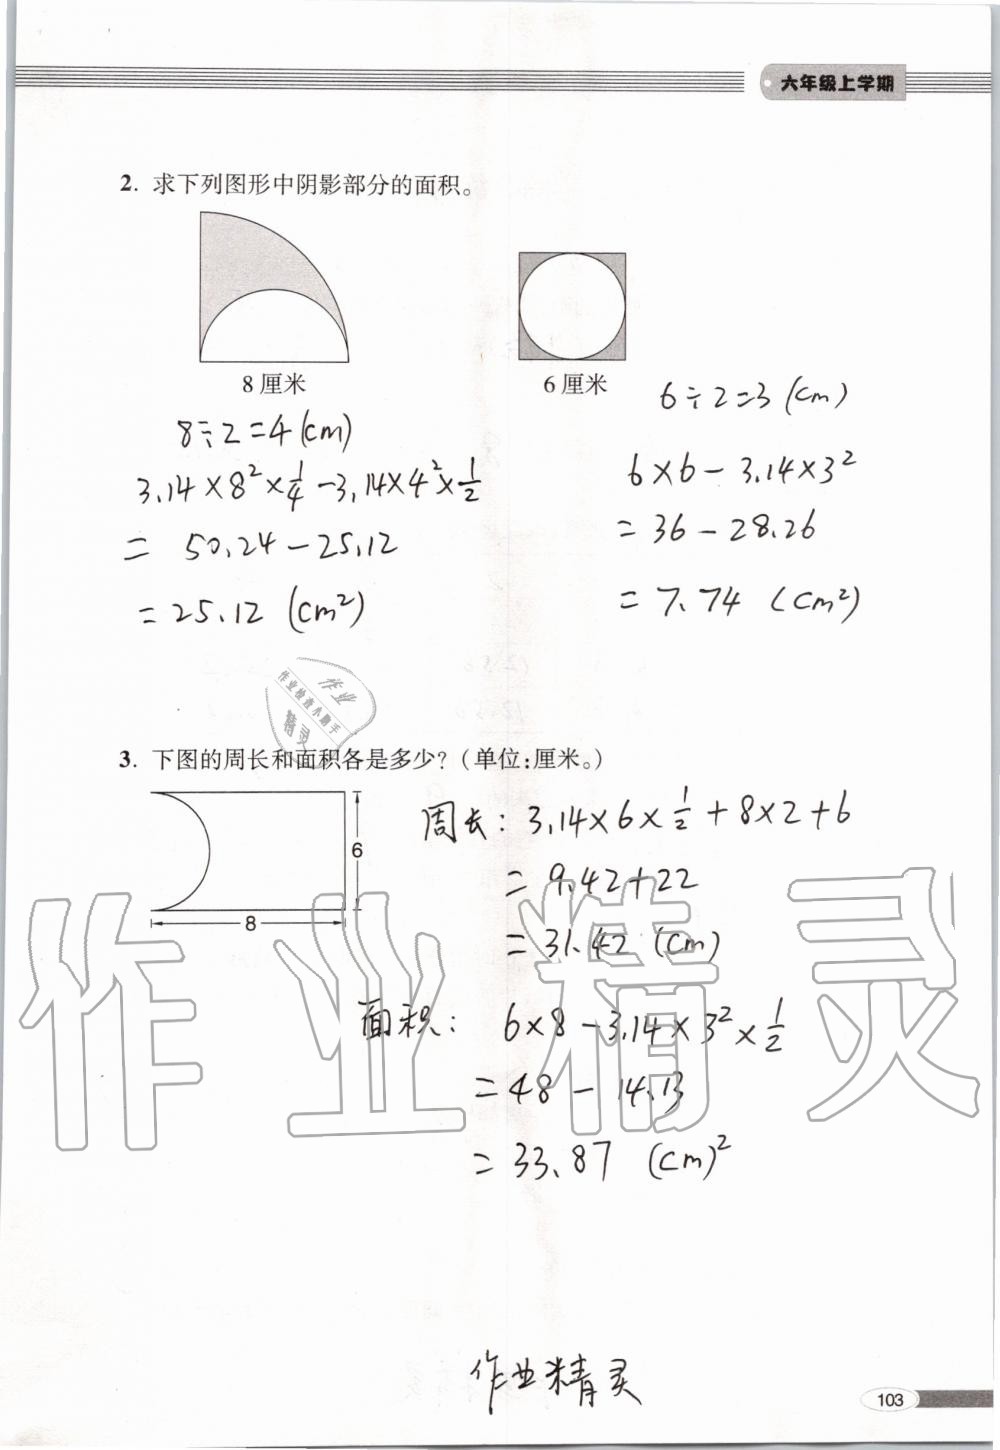 六年级上学期
2. 求下列图形中阴影部分的面积。
8厘米
6厘米
8÷2=4(cm)
3.14×8²×1/4-3.14×4²×1/2
= 50.24-25.12
=25.12 (cm²)
6÷2=3(cm)
6×6-3.14×3²
=36-28.26
=7.74 (cm²)
作业
作业检查小助手
精灵
3. 下图的周长和面积各是多少?(单位:厘米。)
6
8
周长: 3.14×6×1/2+8×2+6
=9.42+22
=31.42 (cm)
面积: 6×8-3.14×3²×1/2
=48-14.13
=33.87 (cm)²
作业精灵
作业精灵
103